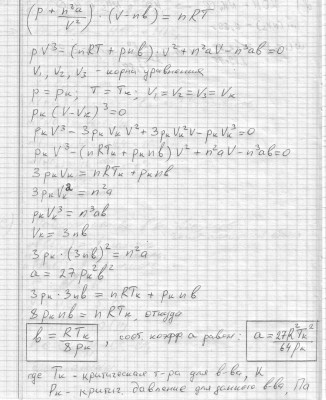 (p + n²a/V²) · (V - nв) = nRT
pV³ - (nRT + pnв) · V² + n²aV - n³aв = 0
V₁, V₂, V₃ - корни уравнения
p = pк, T = Tк, V₁ = V₂ = V₃ = Vк
pк (V - Vк)³ = 0
pкV³ - 3pкVкV² + 3pкVк²V - pкVк³ = 0
pкV³ - (nRTк + pкnв) V² + n²aV - n³aв = 0
3pкVк = nRTк + pкnв
3pкVк² = n²a
pкVк³ = n³aв
Vк = 3nв
3pк · (3nв)² = n²a
a = 27pк²в²
3pк · 3nв = nRTк + pкnв
8pкnв = nRTк, откуда
в = RTк/8pк, соот. коэфф a равен: a = 27R²Tк²/64pк
где Tк - критическая т-ра для в-ва, К
Pк - критич. давление для данного в-ва, Па